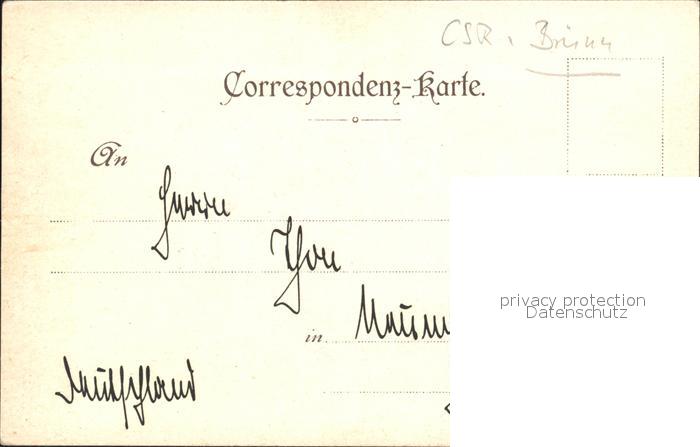 CSR, Brünn
Correspondenz-Karte.
An
Herrn
Thon
in Naum
Deutschland
privacy protection
Datenschutz